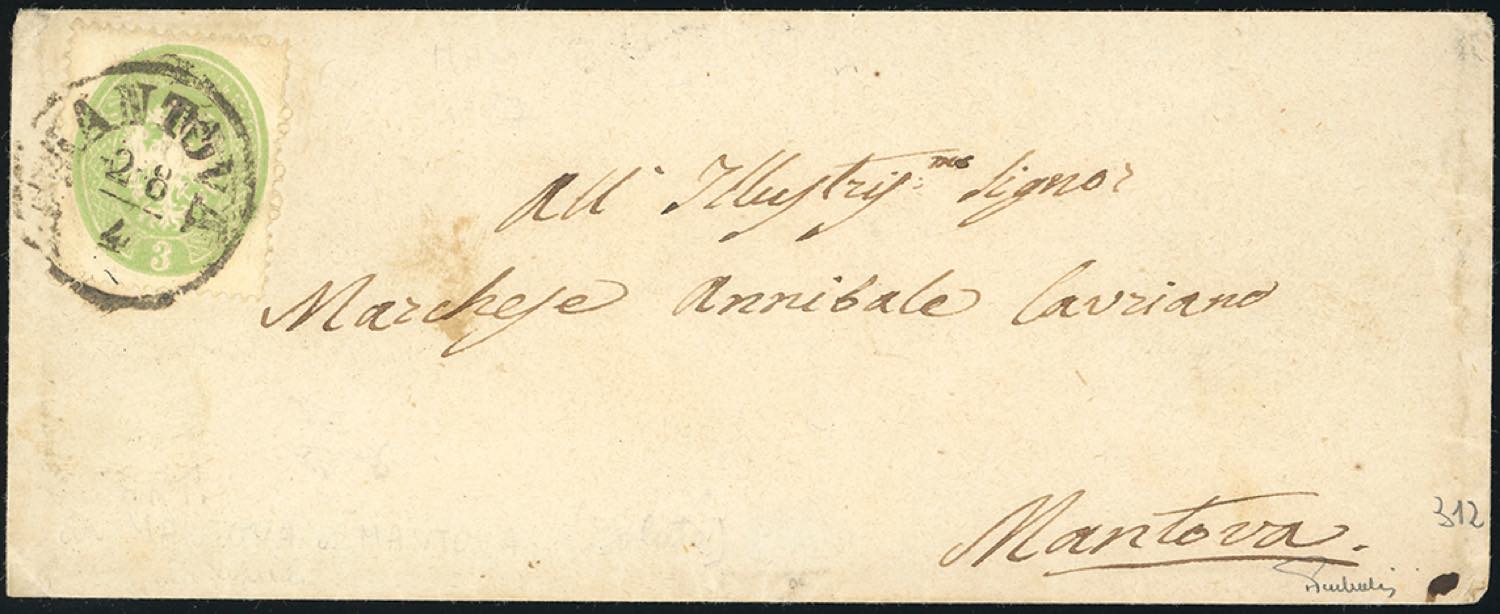 MANTOVA
28
4
3
All' Illustris.mo Signor
Marchese Annibale Cavriano
Mantova.
312